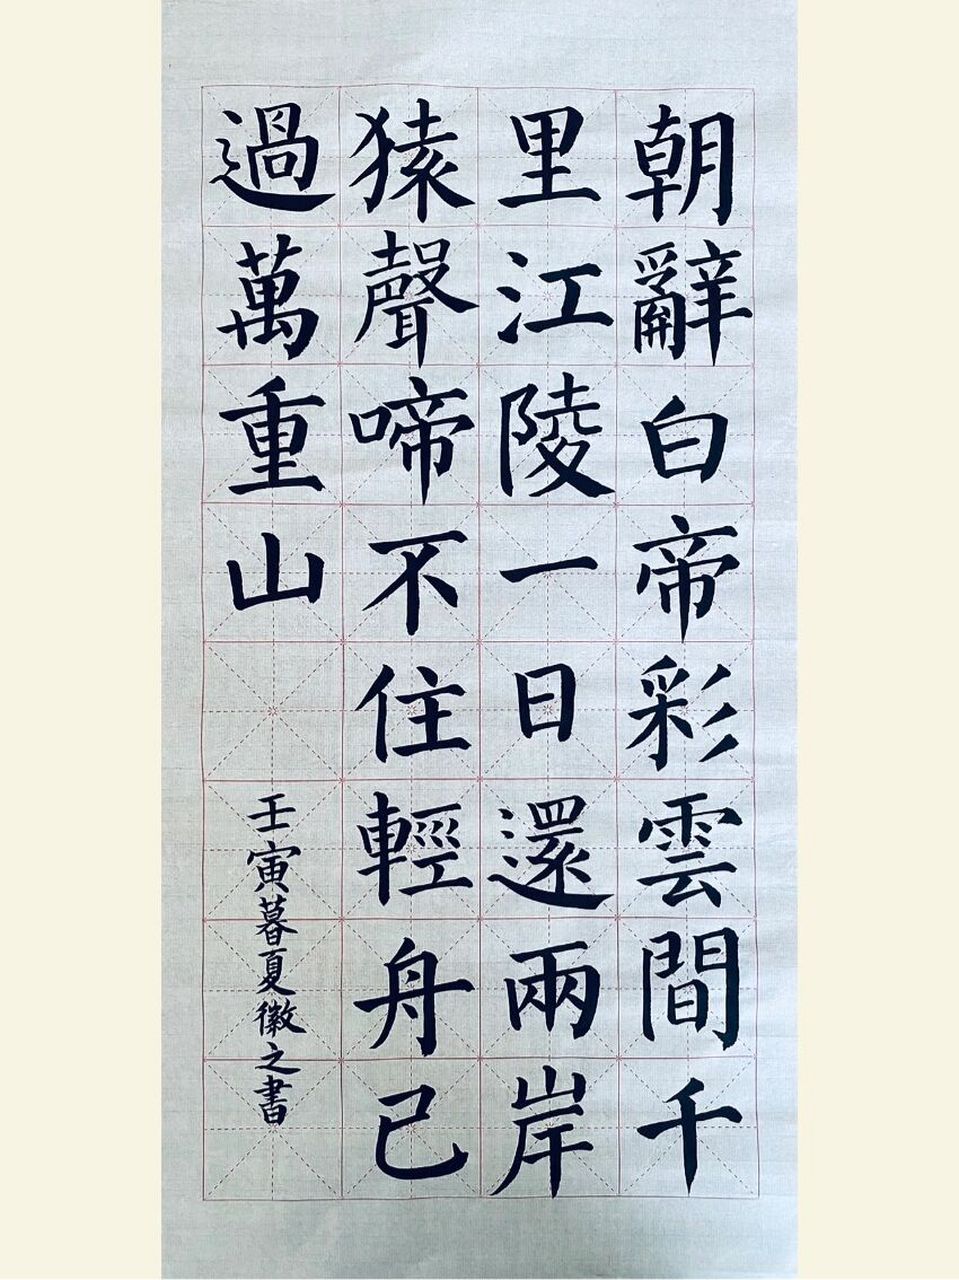 朝辭白帝彩雲間千
里江陵一日還兩岸
猿聲啼不住輕舟已
過萬重山
壬寅暮夏徽之書